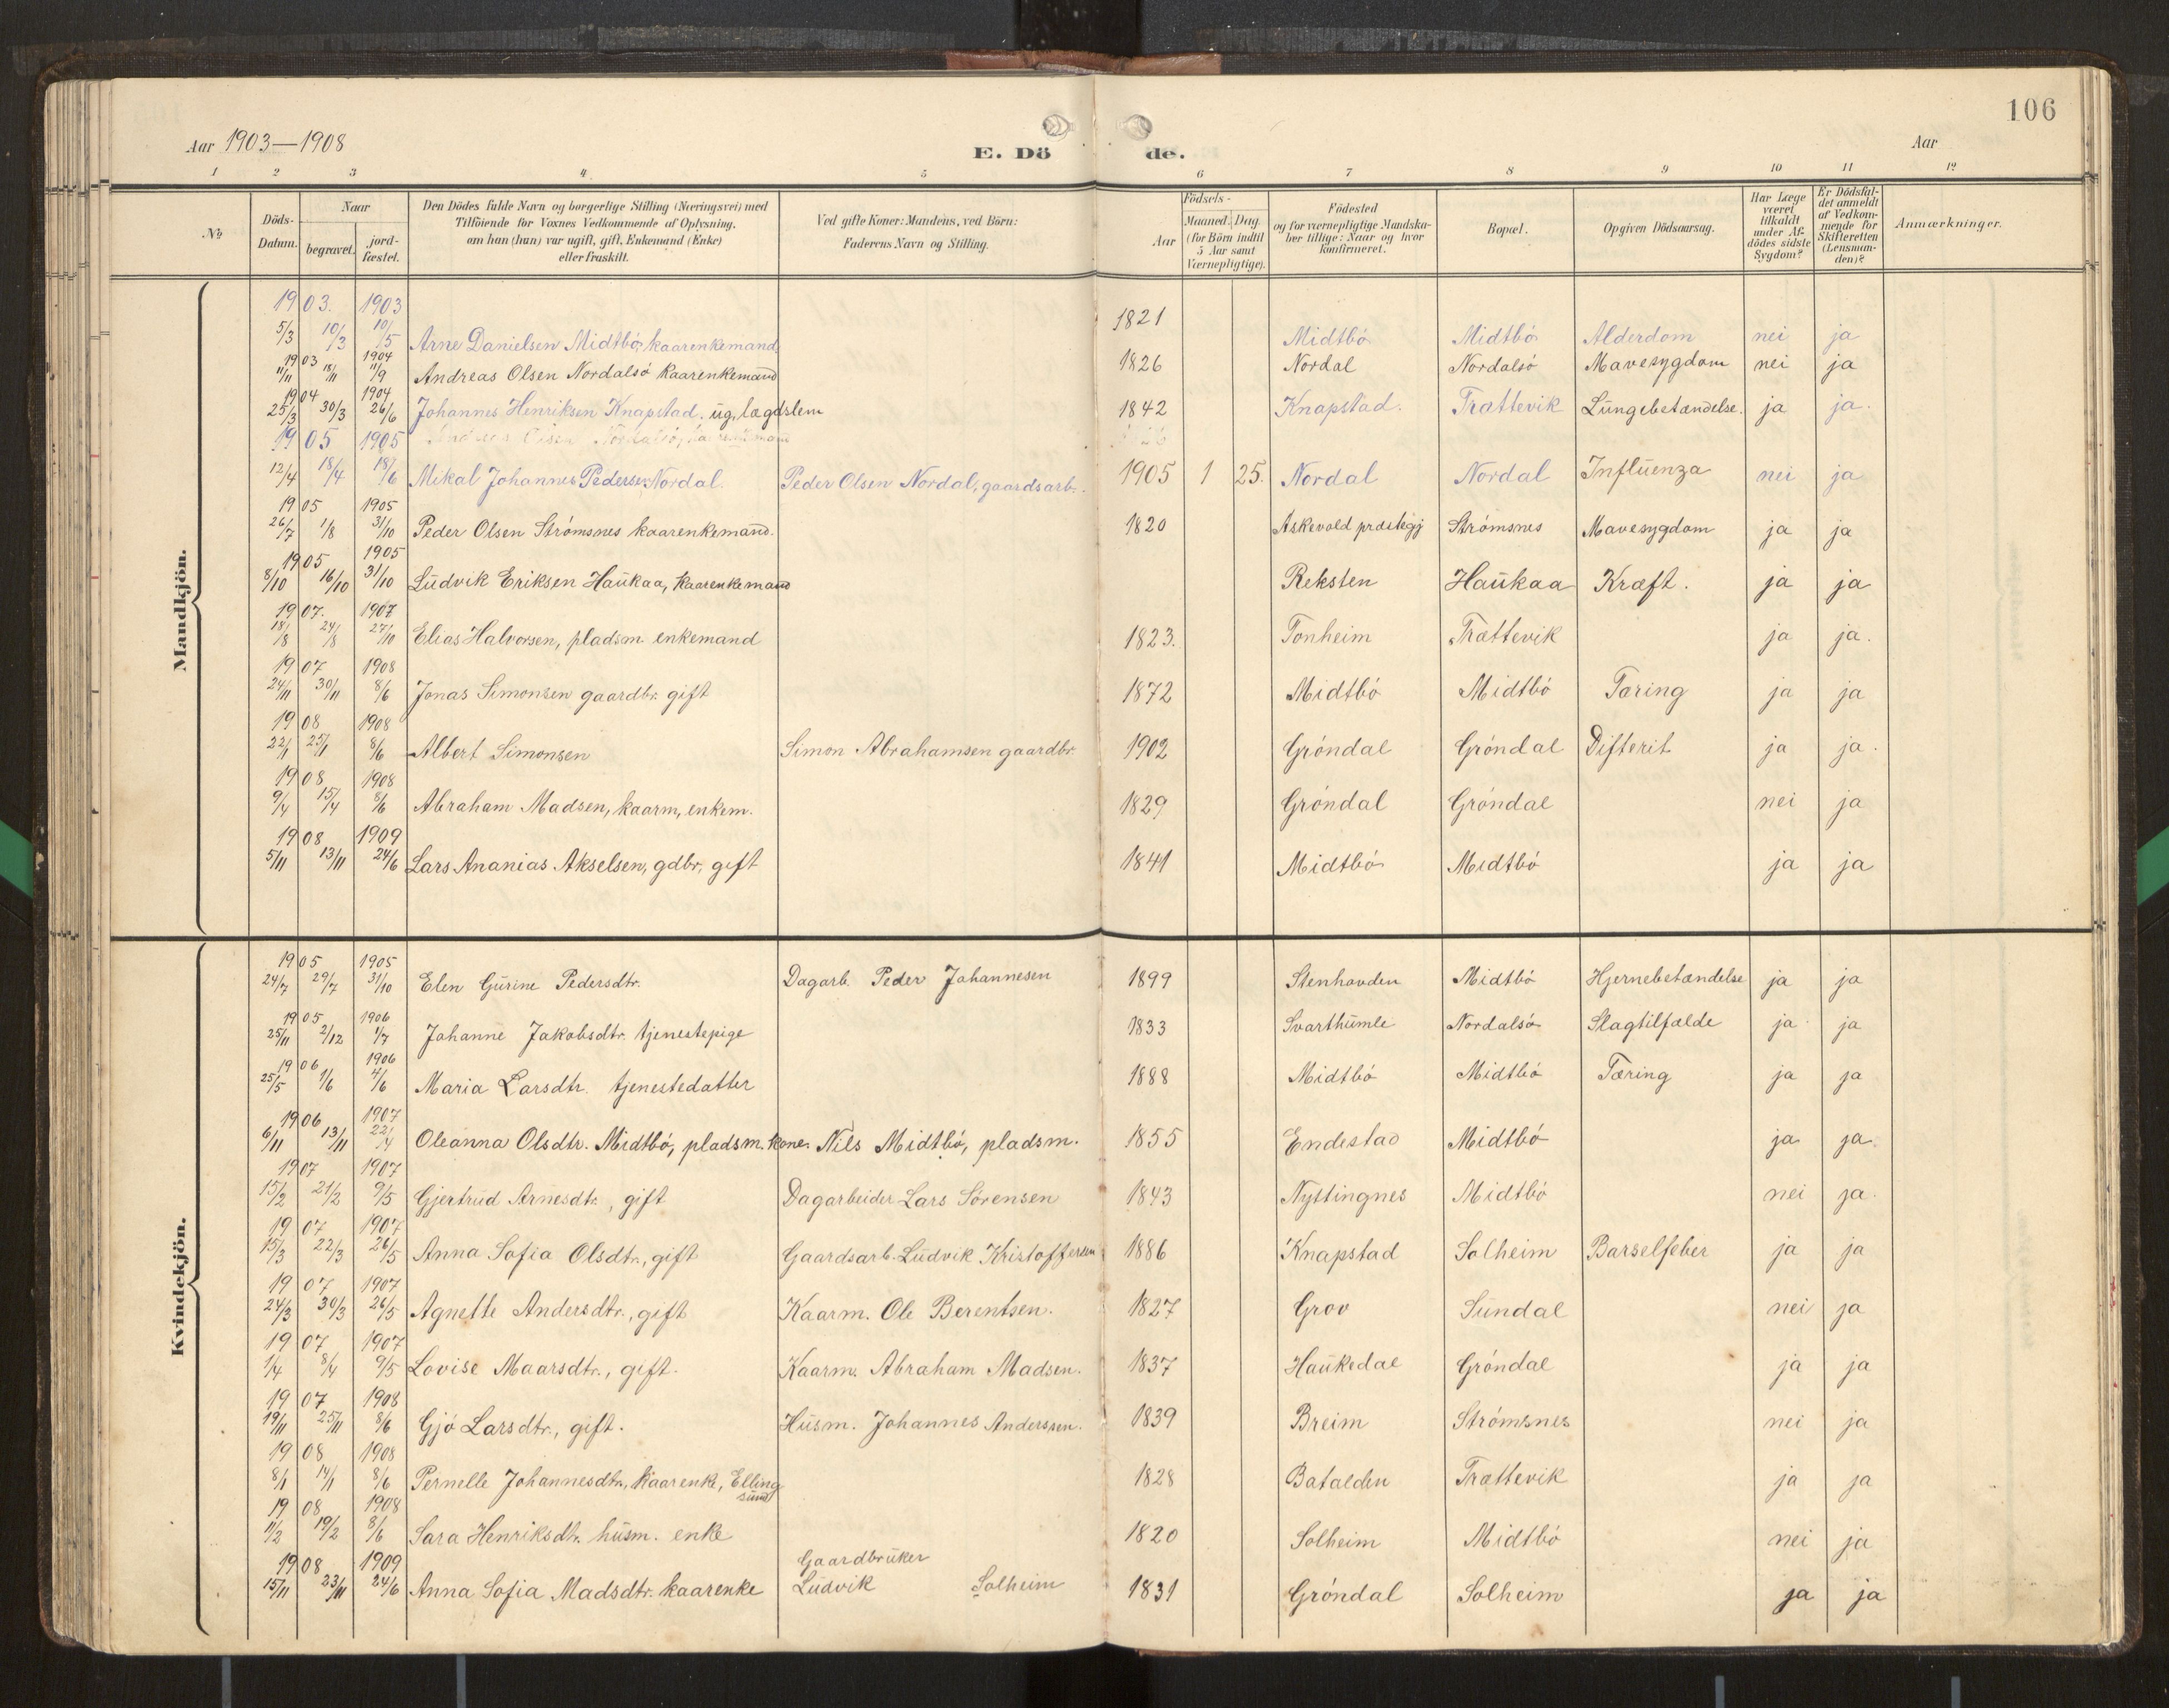 106
Aar 1903—1908
E. Dö de.
Aar
1 2 3 4 5 6 7 8 9 10 11 12
No
Döds-Datum.
Naar
begravet.
jord-fæstet.
Den Dödes fulde Navn og borgerlige Stilling (Næringsvei) med
Tilföiende for Voxnes Vedkommende af Oplysning,
om han (hun) var ugift, gift, Enkemand (Enke)
eller fraskilt.
Ved gifte Koner: Mandens, ved Börn:
Faderens Navn og Stilling.
Födsels-
Aar
Maaned. Dag.
(for Börn indtil
5 Aar samt
Værnepligtige).
Födested
og for værnepligtige Mandska-
ber tillige: Naar og hvor
konfirmeret.
Bopæl.
Opgiven Dödsaarsag.
Har Læge
været
tilkaldt
under Af-
dödes sidste
Sygdom?
Er Dödsfal-
det anmeldt
af Vedkom-
mende for
Skifteretten
(Lensman-
den)?
Anmærkninger.
Mandkjön.
1903. 1903
5/3 10/3 10/5 Arne Danielsen Midtbö, kaarenkemand, 1821 Midtbö Midtbö Alderdom nei ja
1903 1904
11/11 18/11 11/9 Andreas Olsen Nordalsö kaarenkemand 1826 Nordal Nordalsö Mavesygdom nei ja
1904 1904
25/3 30/3 26/6 Johannes Henriksen Knapstad. ug, lægdslem 1842 Knapstad. Trættevik Lungebetændelse. ja ja.
1905 1905
12/4 18/4 18/6 Mikal Johannes Pedersen Nordal. Peder Olsen Nordal, gaardsarb. 1905 1 25. Nordal Nordal Influenza nei ja
1905 1905
26/7 1/8 31/10 Peder Olsen Strömsnes kaarenkemand. 1820 Askevold præstegj Strömsnes Mavesygdom ja ja
1905 1905
8/10 16/10 31/10 Ludvik Eriksen Haukaa, kaarenkemand Reksten Haukaa Kræft. ja ja
1907. 1907
18/8 24/8 27/10 Elias Halvorsen, pladsm. enkemand 1823. Tonheim Trættevik ja ja.
1907 1908
24/11 30/11 8/6 Jonas Simonsen gaardbr. gift 1872 Midtbö Midtbö Tæring ja ja
1908 1908
22/1 25/1 8/6 Albert Simonsen Simon Abrahamsen gaardbr. 1902 Gröndal Gröndal Difterit ja ja.
1908 1908
9/4 15/4 8/6 Abraham Madsen, kaarm, enkem. 1829 Gröndal Gröndal nei ja
1908 1909
5/11 13/11 24/6 Lars Ananias Akselsen, gdbr, gift 1841 Midtbö Midtbö ja ja
Kvindekjön.
1905 1905
24/7 29/7 31/10 Elen Gurine Pedersdtr. Dagarb. Peder Johannesen 1899 Stenhovden Midtbö Hjernebetændelse ja ja
1905 1906
25/11 2/12 1/7 Johanne Jakobsdtr. tjenestepige 1833 Svarthumle Nordalsö Slagtilfælde ja ja
1906 1906
25/5 1/6 4/6 Maria Larsdtr. tjenestedatter 1888 Midtbö Midtbö Tæring ja ja
1906 1907
6/11 13/11 22/4 Oleanna Olsdtr. Midtbö, pladsm. kone. Nils Midtbö, pladsm. 1855 Endestad Midtbö ja ja.
1907 1907
15/2 21/2 9/5 Gjertrud Arnesdtr., gift Dagarbeider Lars Sörensen 1843 Nyttingnes Midtbö nei ja.
1907 1907
15/3 22/3 26/5 Anna Sofia Olsdtr., gift Gaardsarb. Ludvik Kristoffersen 1886 Knapstad Solheim Barselfeber ja ja
1907 1907
24/3 30/3 26/5 Agnette Andersdtr., gift Kaarm. Ole Berentsen. 1827 Grov Sundal nei ja
1907 1907
1/4 8/4 9/5 Lovise Maarsdtr., gift. Kaarm. Abraham Madsen. 1837 Haukedal Gröndal ja ja
1907 1908
19/11 25/11 8/6 Gjö Larsdtr., gift. Husm. Johannes Anderssen. 1839 Breim Strömsnes nei ja
1908 1908
8/1 14/1 8/6 Pernelle Johannesdtr, kaarenke, Ellingsund 1828 Batalden Trættevik ja ja
1908 1908
11/2 19/2 8/6 Sara Henriksdtr. husm. enke 1820 Solheim Midtbö nei ja
1908 1909 Gaardbruker
15/11 23/11 24/6 Anna Sofia Madsdtr. kaarenke Ludvik Solheim 1831 Gröndal Solheim ja ja